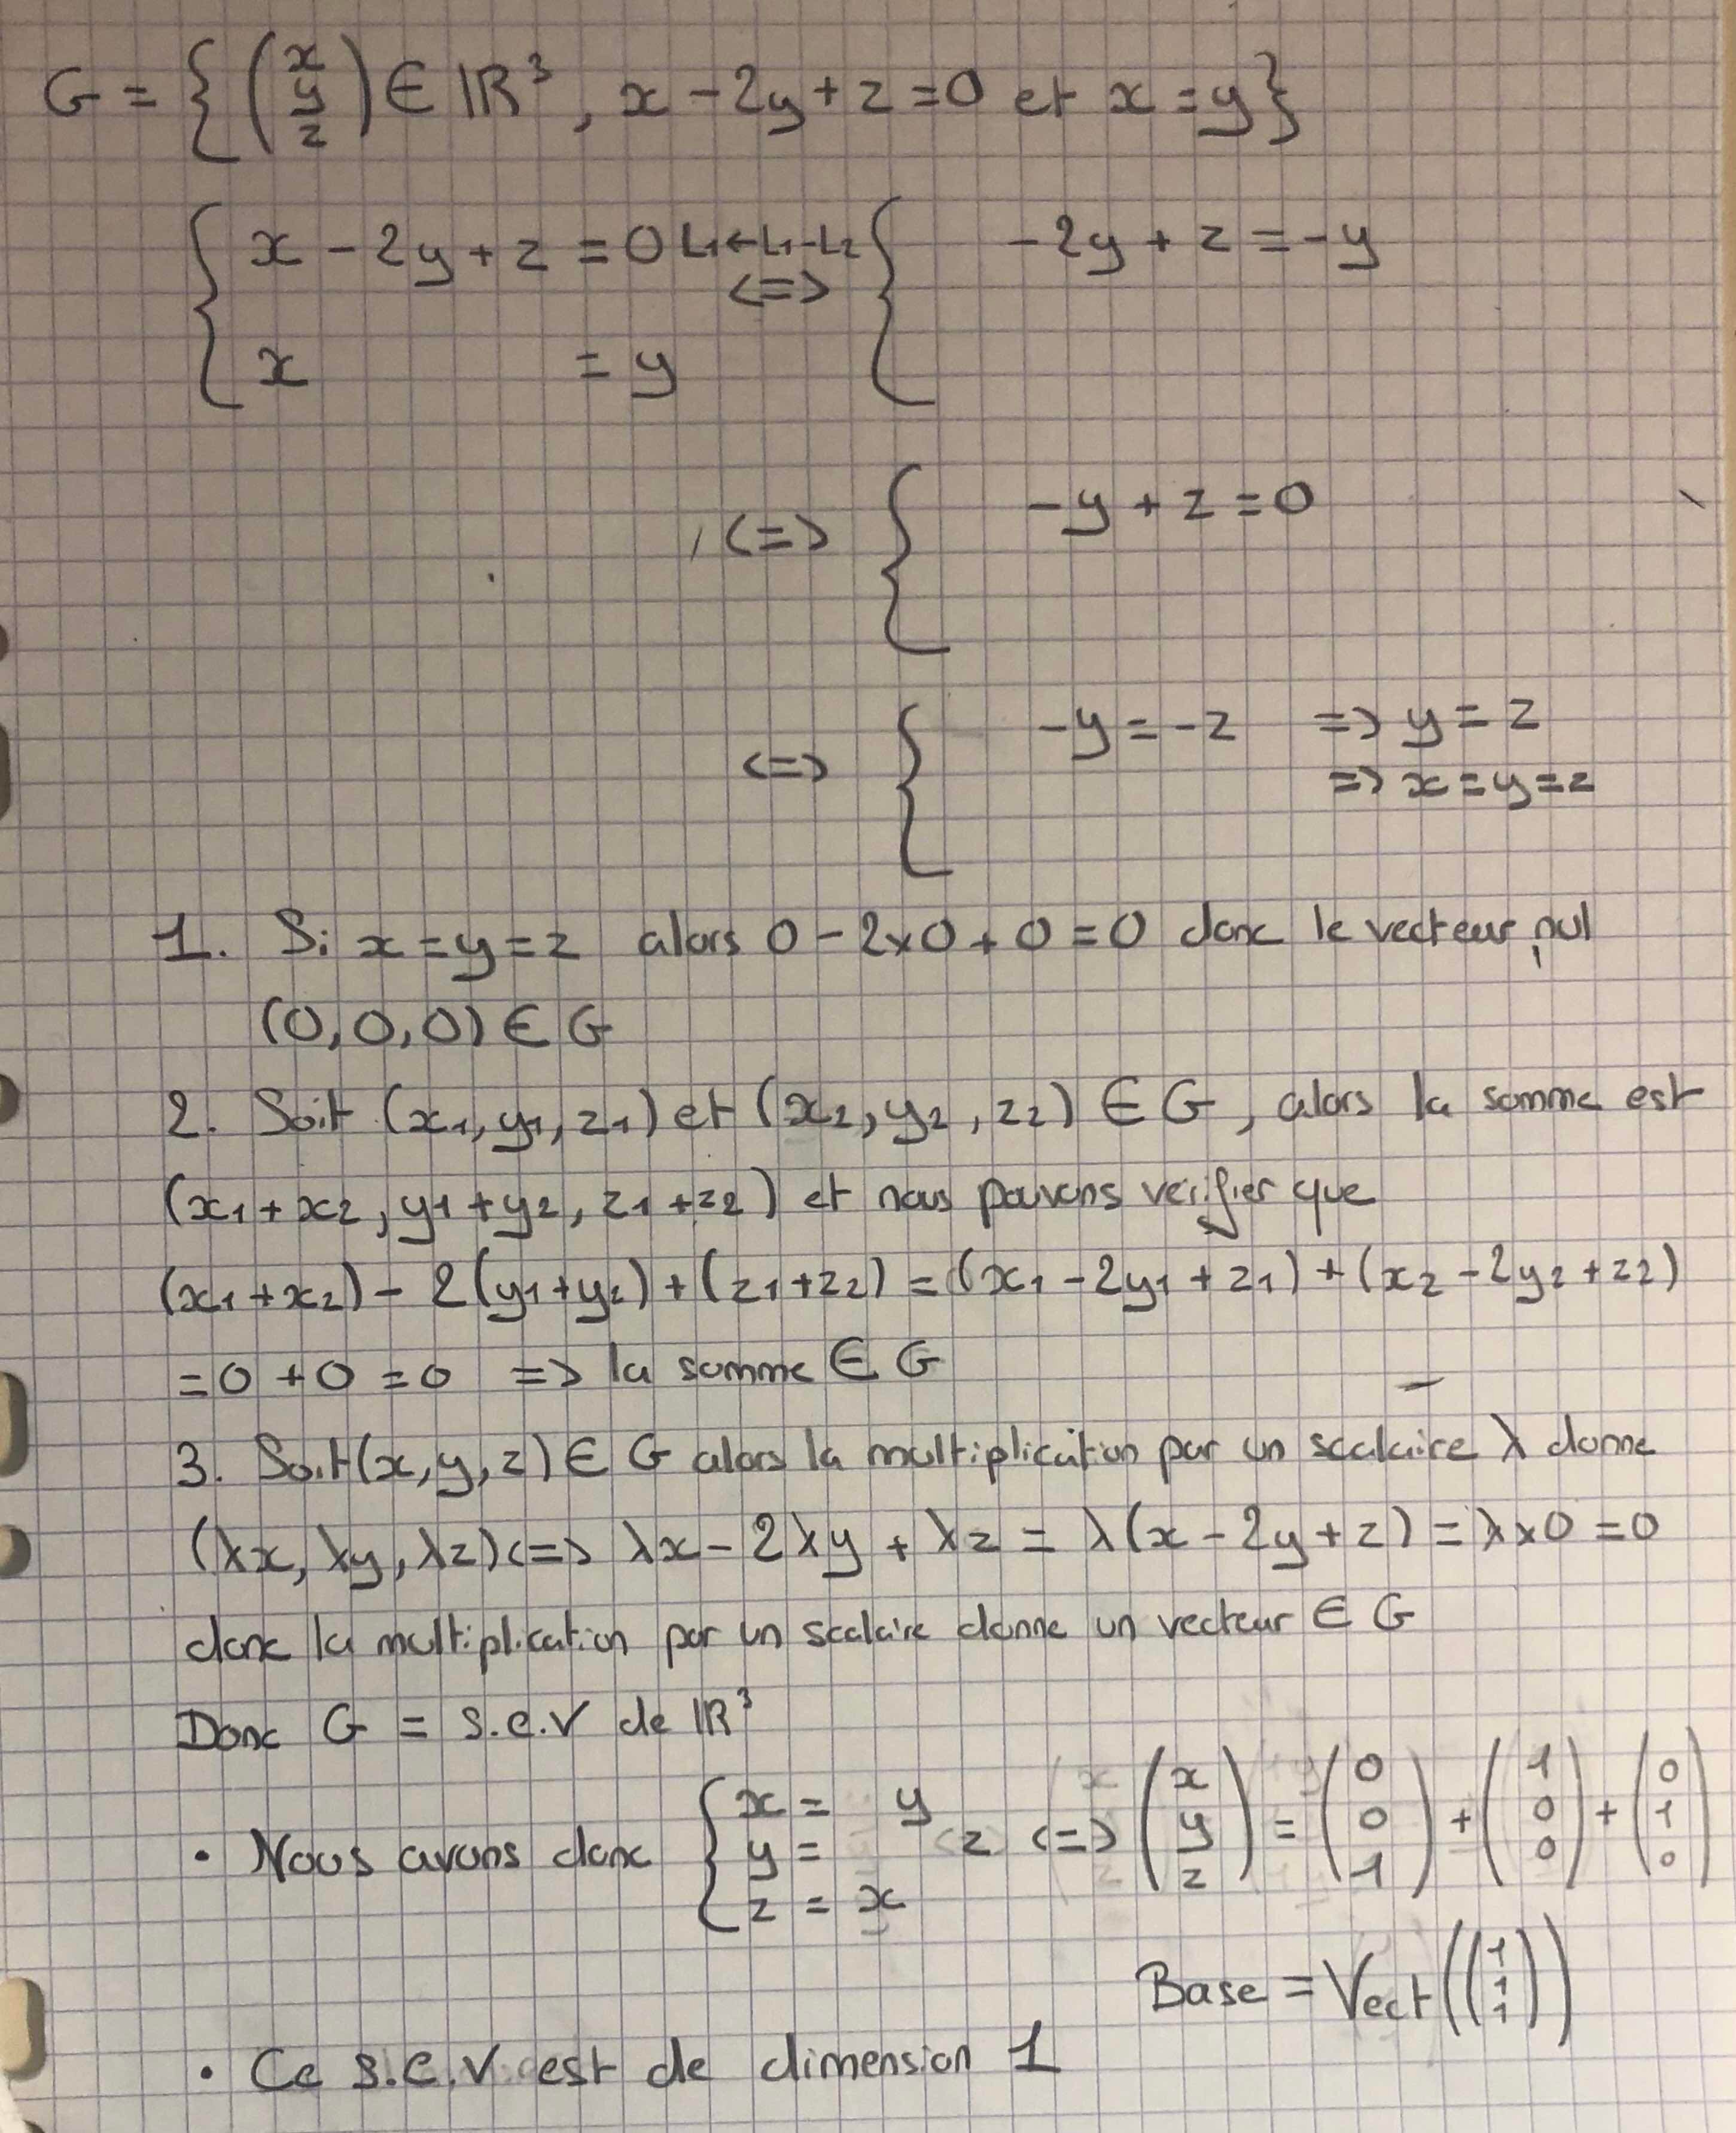 G = { (x y z) ∈ IR³, x - 2y + z = 0 et x = y }
{ x - 2y + z = 0 L₁←L₁-L₂ <=> { -2y + z = -y
x = y
<=> { -y + z = 0
<=> { -y = -z => y = z
=> x = y = z
1. Si x = y = z alors 0 - 2x0 + 0 = 0 donc le vecteur nul
(0,0,0) ∈ G
2. Soit (x₁, y₁, z₁) et (x₂, y₂, z₂) ∈ G, alors la somme est
(x₁ + x₂, y₁ + y₂, z₁ + z₂) et nous pouvons verifier que
(x₁ + x₂) - 2(y₁ + y₂) + (z₁ + z₂) = (x₁ - 2y₁ + z₁) + (x₂ - 2y₂ + z₂)
= 0 + 0 = 0 => la somme ∈ G
3. Soit (x, y, z) ∈ G alors la multiplication par un scalaire λ donne
(λx, λy, λz) <=> λx - 2λy + λz = λ(x - 2y + z) = λx0 = 0
donc la multiplication par un scalaire donne un vecteur ∈ G
Donc G = s.e.v de IR³
• Nous avons donc { x = y
y = z <=> (x y z) = (0 0 1) + (1 0 0) + (0 1 0)
z = x
Base = Vect((1 1 1))
• Ce s.e.v est de dimension 1